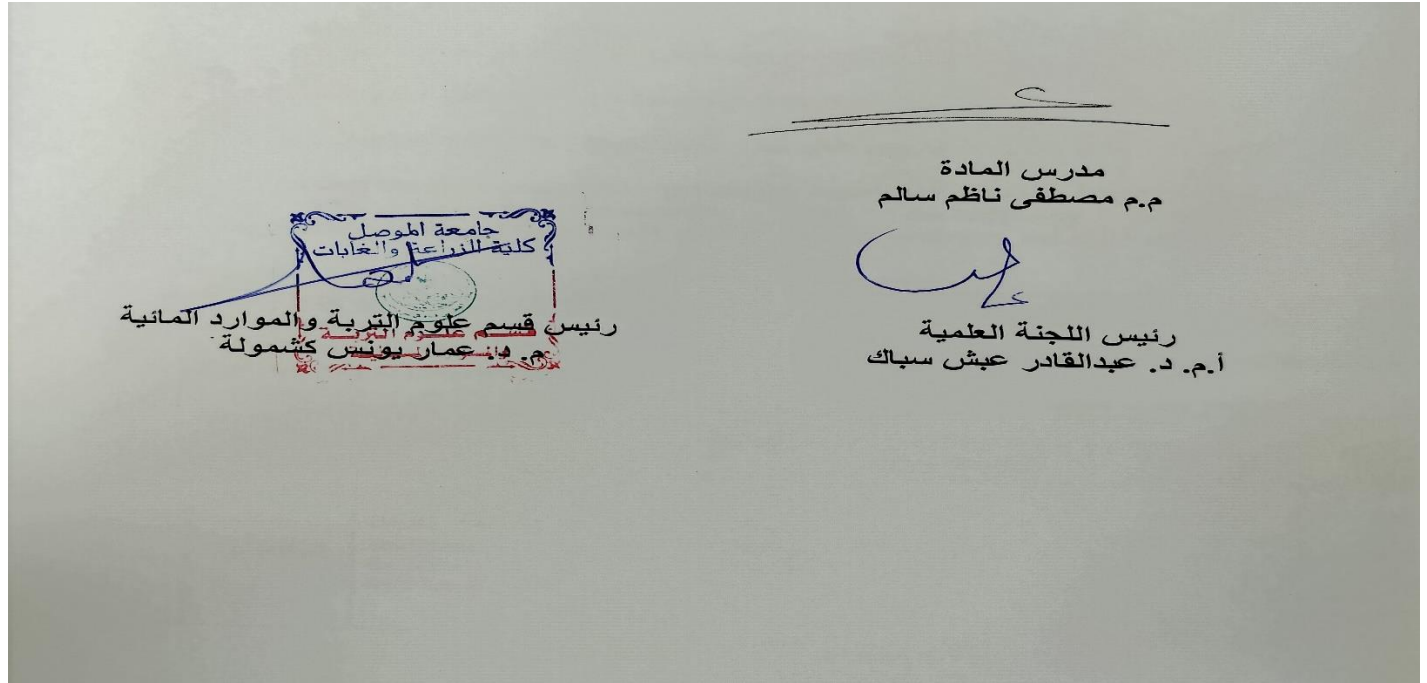 مدرس المادة
م.م مصطفى ناظم سالم
رئيس اللجنة العلمية
أ.م. د. عبدالقادر عبش سباك
جامعة الموصل
كلية الزراعة والغابات
رئيس قسم علوم التربة والموارد المائية
م. د. عمار يونس كشمولة
قسم علوم التربة